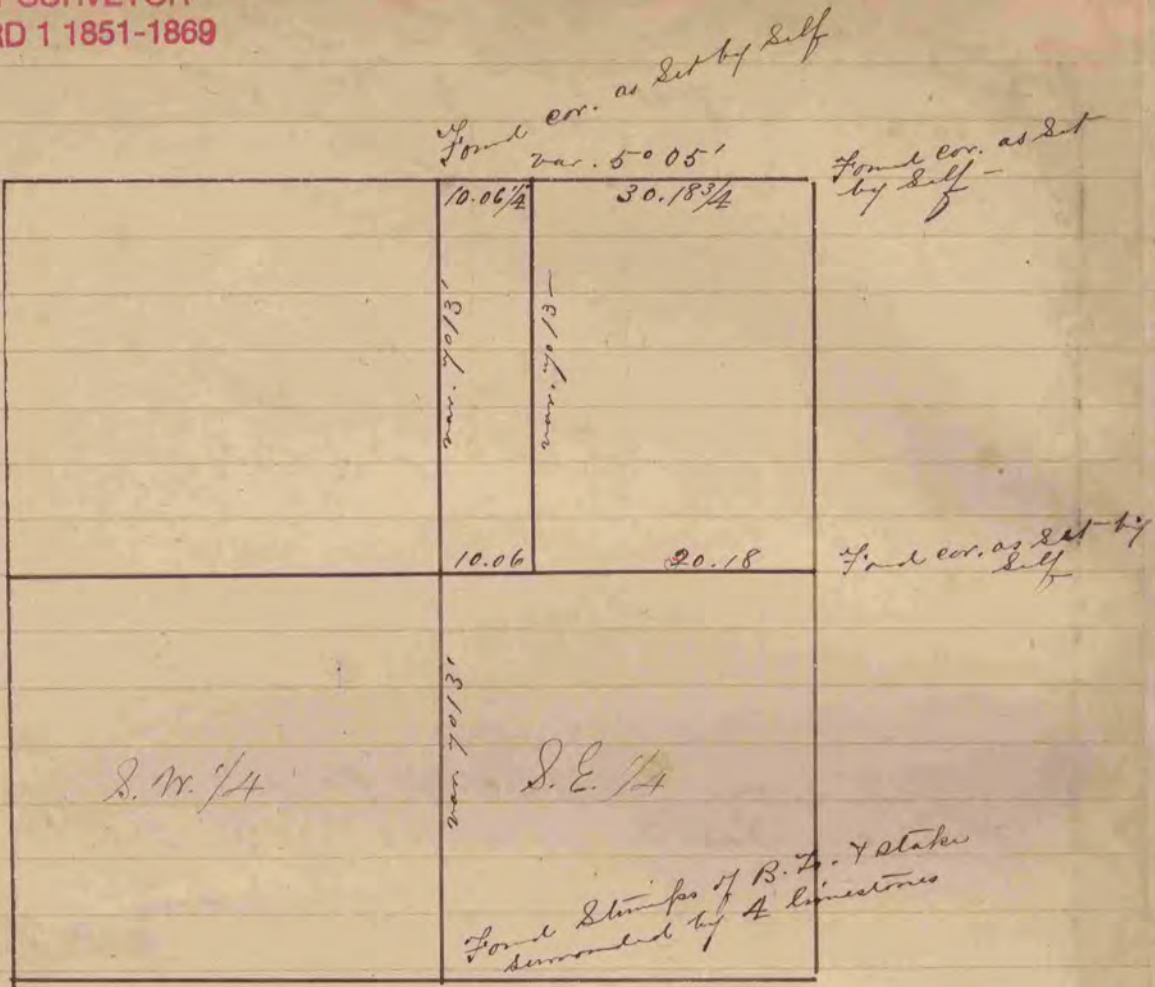 SURVEYOR
RD 1 1851-1869
Found cor. as Set by Self
var. 5° 05'
Found cor. as Set
by Self -
10.06 1/4
30.18 3/4
var. 7° 13'
var. 7° 13'
10.06
20.18
Found cor. as Set by
Self
var 7° 13'
S.W. 1/4
S.E. 1/4
Found Stumps of B. Ts. & stake
surrounded by 4 limestones